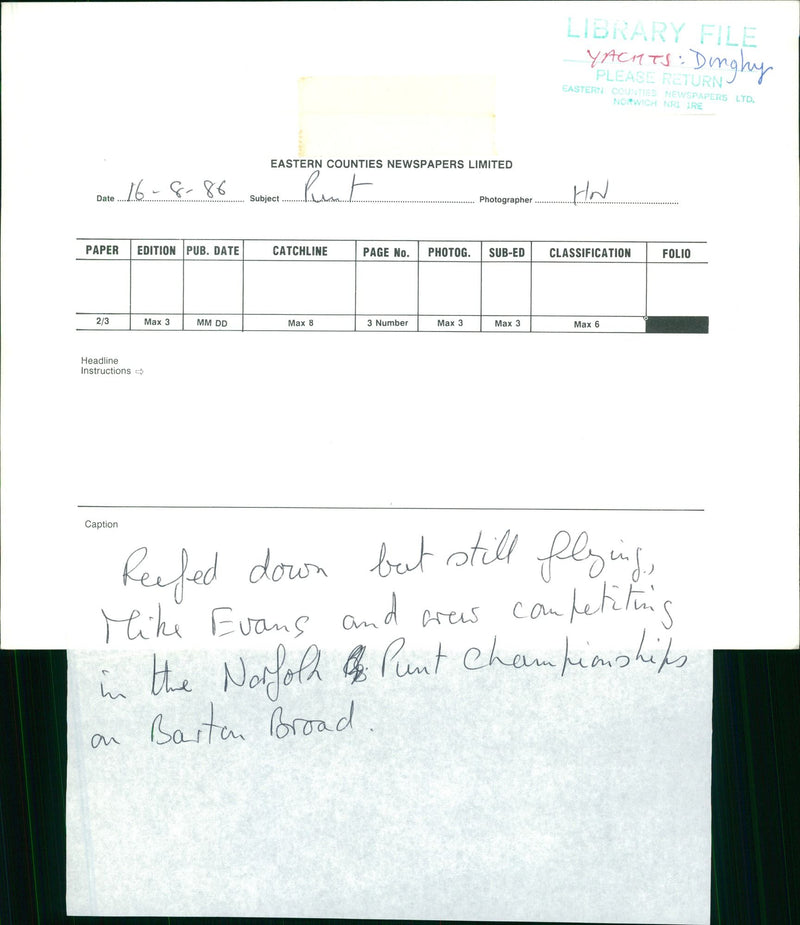 LIBRARY FILE
YACHTS: Dinghy
PLEASE RETURN
EASTERN COUNTIES NEWSPAPERS LTD.
NORWICH NR1 1RE
EASTERN COUNTIES NEWSPAPERS LIMITED
Date 16-8-86 Subject Punt Photographer HN
PAPER EDITION PUB. DATE CATCHLINE PAGE No. PHOTOG. SUB-ED CLASSIFICATION FOLIO
2/3 Max 3 MM DD Max 8 3 Number Max 3 Max 3 Max 6
Headline
Instructions ⇨
Caption
Reefed down but still flying,
Mike Evans and crew competiting
in the Norfolk Punt Championships
on Barton Broad.